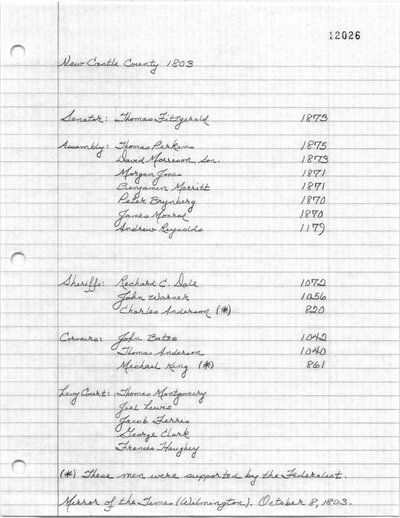 12026
New Castle County 1803
Senator: Thomas Fitzgerald 1873
Assembly: Thomas Perkins 1875
David Morrison Sen. 1873
Morgan Jones 1871
Benjamin Merritt 1871
Peter Brynberg 1870
James Monroe 1870
Andrew Reynolds 1179
Sheriffs: Richard C. Dale 1072
John Warner 1056
Charles Anderson (*) 820
Coroners: John Bates 1042
Thomas Anderson 1040
Michael King (*) 861
Levy Court: Thomas Montgomery
Joel Lewis
Jacob Ferres
George Clark
Francis Haughey
(*) These men were supported by the Federalist.
Mirror of the Times (Wilmington). October 8, 1803.